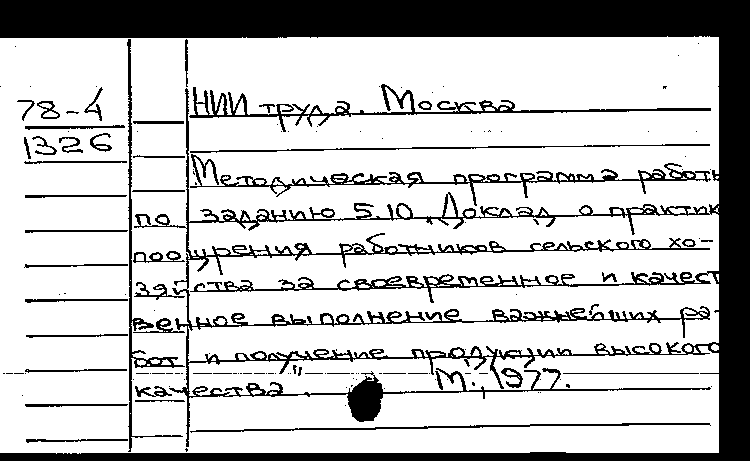 78-4
1326
НИИ труда. Москва
Методическая программа работы
по заданию 5.10 „Доклад о практик
поощрения работников сельского хо-
зяйства за своевременное и качест
венное выполнение важнейших ра-
бот и получение продукции высокого
качества". М., 1977.